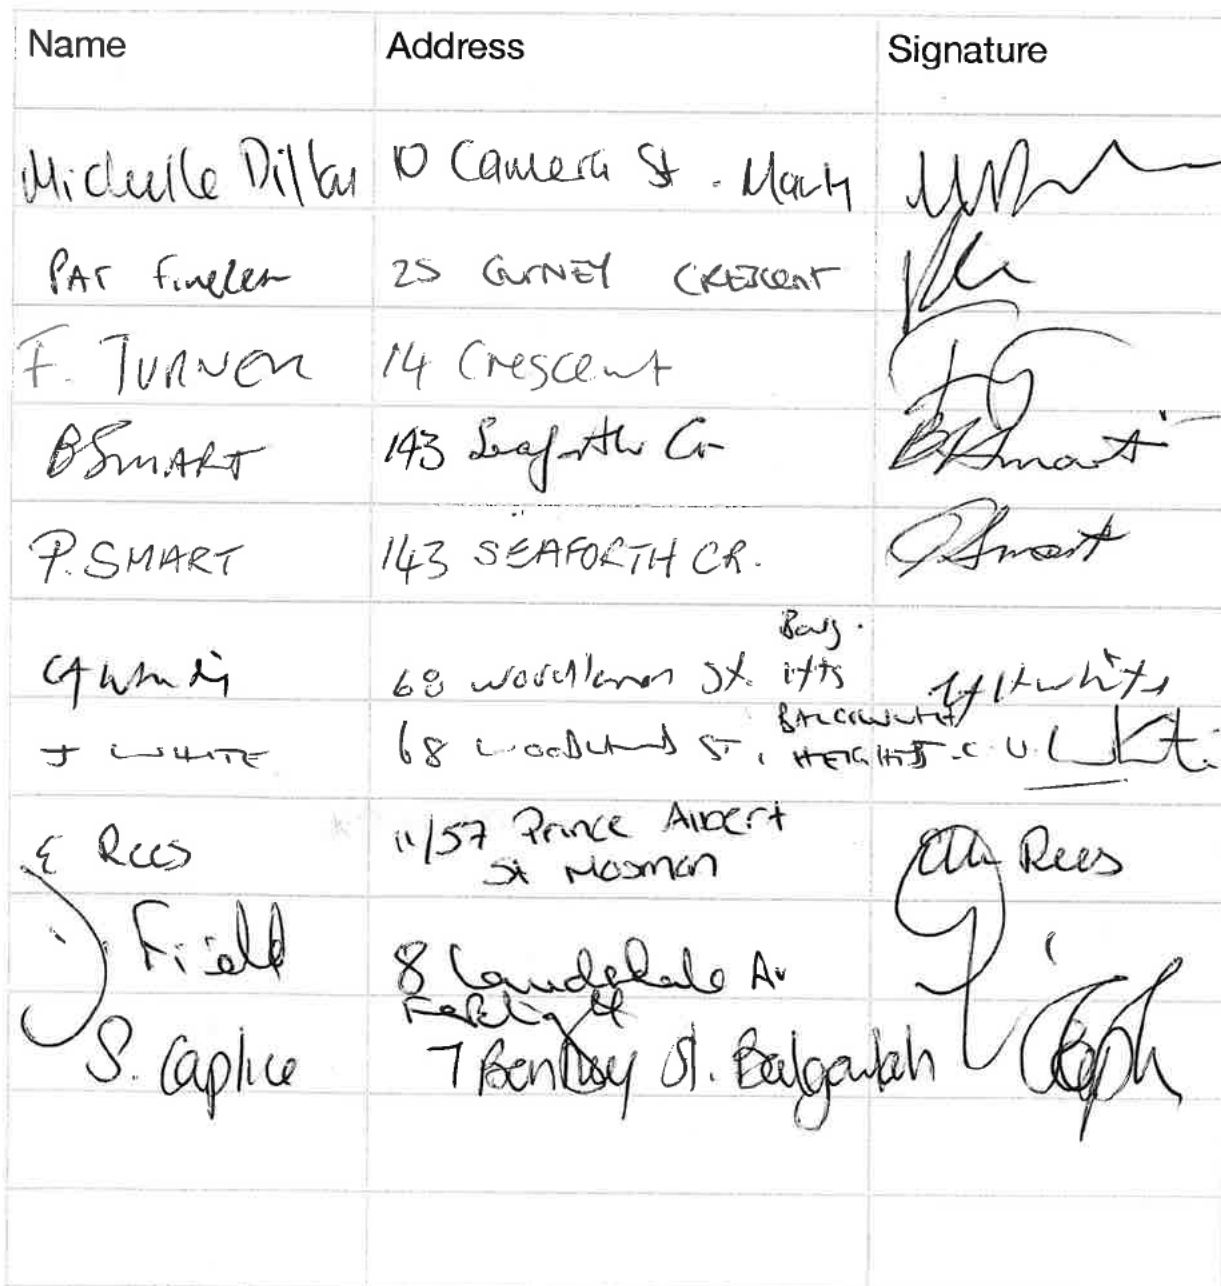 Name Address Signature
Michelle Dillon 10 Camera St. Manly
PAT 25 GURNEY CRESCENT
F. TURNER 14 Crescent
B SMART 143 Seaforth Cr BSmart
P. SMART 143 SEAFORTH CR. PSmart
Balg.
68 St. Hts
BALGOWLAH
J WHITE 68 WOODLAND ST, HEIGHTS
E Rees 11/57 Prince Albert Rees
St Mosman
J. Field 8 Lauderdale Av
S. Caplice 7 Bentley St. Balgowlah